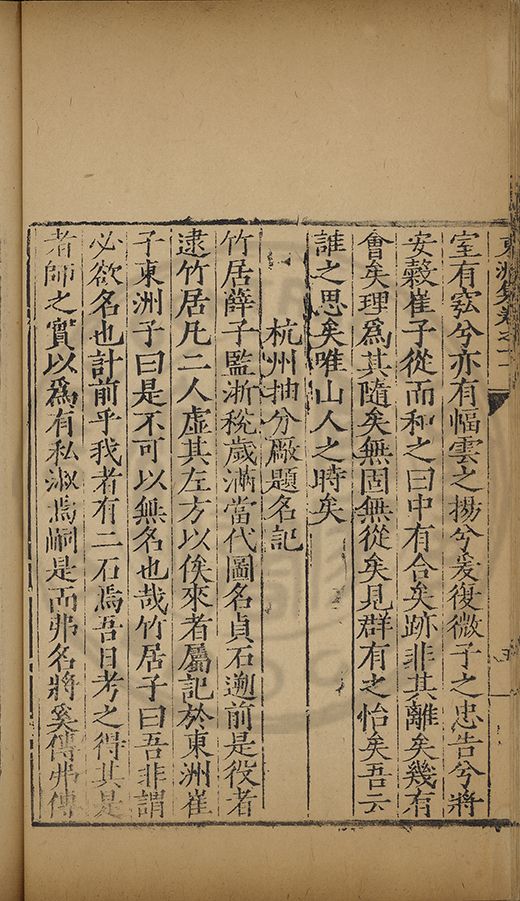 東洲集卷之十
室有兮亦有幅雲之揚兮爰復微子之忠告兮將
安穀崔子從而和之曰中有合矣跡非其離矣幾有
會矣理爲其隨矣無固無從矣見群有之怡矣吾云
誰之思矣唯山人之時矣
杭州抽分厰題名記
竹居薛子監浙稅歲滿當代圖名貞石遡前是役者
逮竹居凡二人虛其左方以俟來者屬記於東洲崔
子東洲子曰是不可以無名也哉竹居子曰吾非謂
必欲名也計前乎我者有二石焉吾日考之得其是
者師之實以爲有私淑焉嗣是而弗名將奚傳弗傳